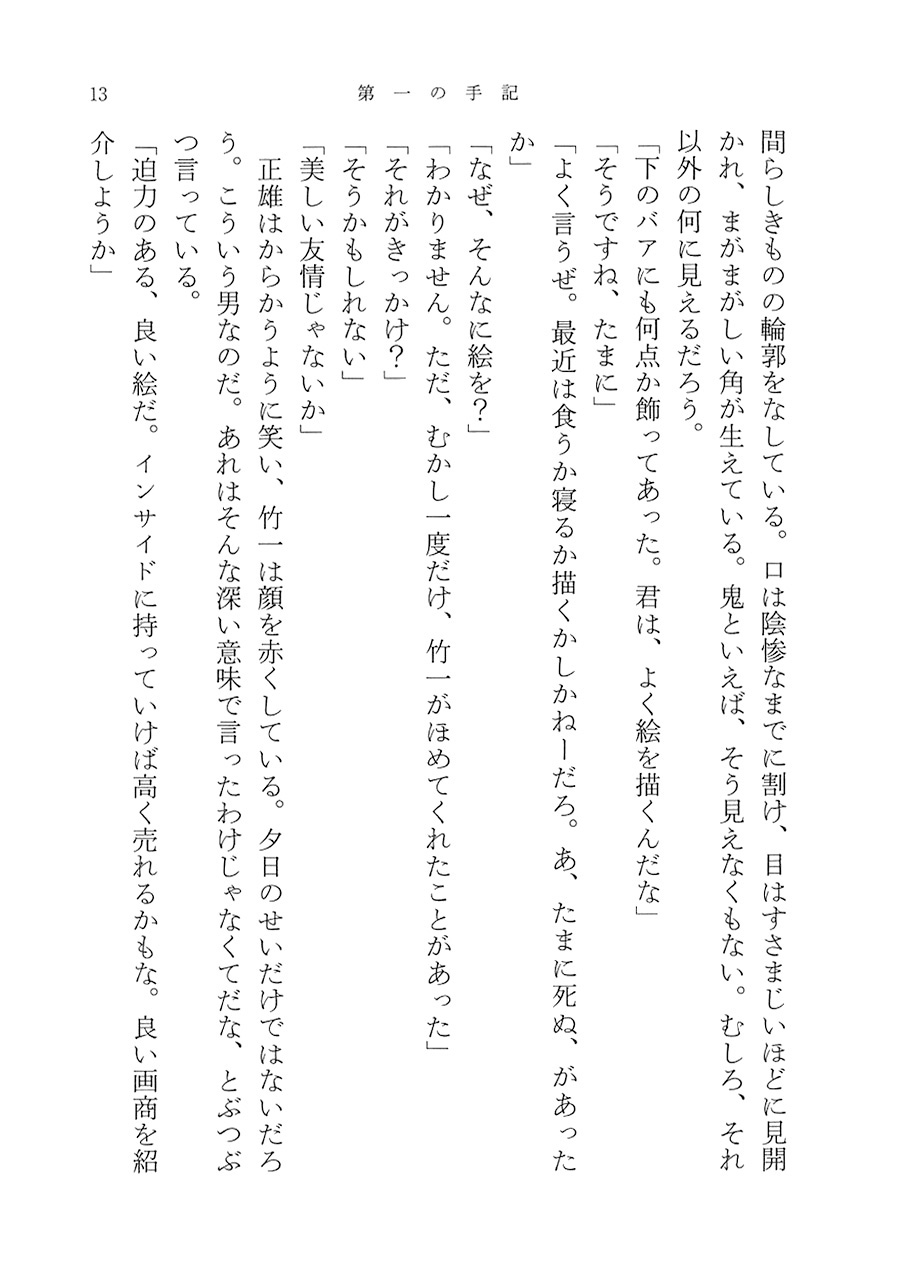 13
第一の手記
間らしきものの輪郭をなしている。口は陰惨なまでに割け、目はすさまじいほどに見開
かれ、まがまがしい角が生えている。鬼といえば、そう見えなくもない。むしろ、それ
以外の何に見えるだろう。
「下のバアにも何点か飾ってあった。君は、よく絵を描くんだな」
「そうですね、たまに」
「よく言うぜ。最近は食うか寝るか描くかしかねーだろ。あ、たまに死ぬ、があった
か」
「なぜ、そんなに絵を？」
「わかりません。ただ、むかし一度だけ、竹一がほめてくれたことがあった」
「それがきっかけ？」
「そうかもしれない」
「美しい友情じゃないか」
正雄はからかうように笑い、竹一は顔を赤くしている。夕日のせいだけではないだろ
う。こういう男なのだ。あれはそんな深い意味で言ったわけじゃなくてだな、とぶつぶ
つ言っている。
「迫力のある、良い絵だ。インサイドに持っていけば高く売れるかもな。良い画商を紹
介しようか」